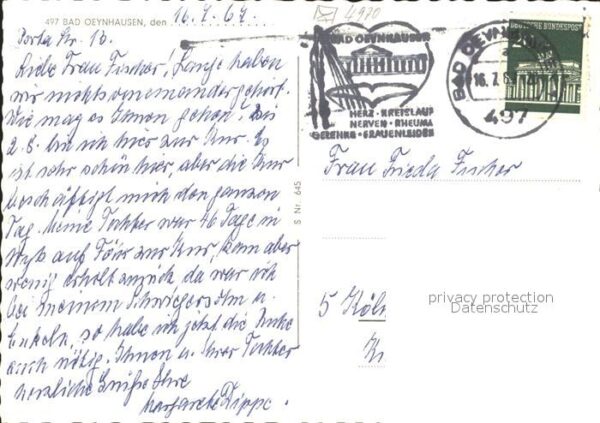 497 BAD OEYNHAUSEN, den 16.7.69.
Porta Str. 13.
Liebe Frau Fischer! Lange haben
wir nichts voneinander gehört.
Wie mag es Ihnen gehen? Bis
2.8. bin ich hier zur Kur. Es
ist sehr schön hier, aber die Kur
beschäftigt mich den ganzen
Tag. Meine Tochter war 46 Tage in
Wyk auf Föhr zur Kur, kam aber
wenig erholt zurück, da war ich
bei meinem Schwiegersohn u.
Enkeln, so habe ich jetzt die Ruhe
auch nötig. Ihnen u. Ihrer Tochter
herzliche Grüße Ihre
Margarete Dippe.
S Nr. 645
4970
BAD OEYNHAUSEN
HERZ · KREISLAUF
NERVEN · RHEUMA
GELENKE · FRAUENLEIDEN
BAD OEYNHAUSEN
16.7.69
497
DEUTSCHE BUNDESPOST
Frau Frieda Fischer
5 Köln
privacy protection
Datenschutz